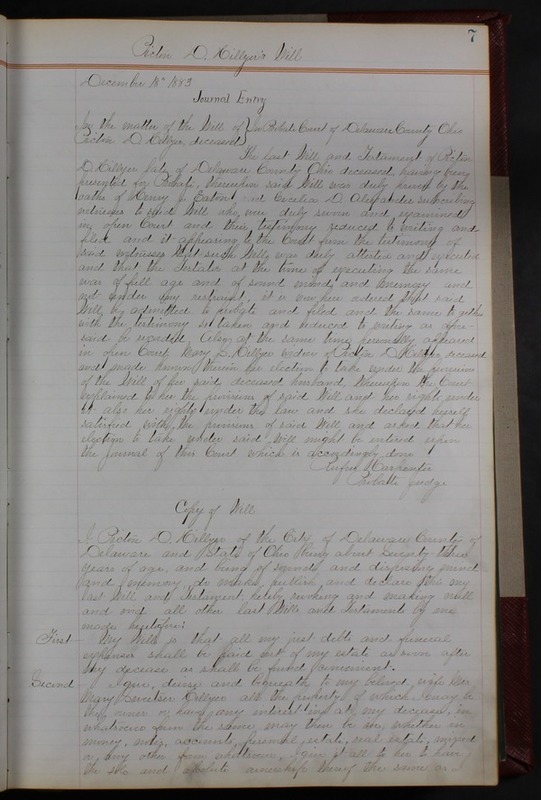 7
Rector D. Hillyer's Will
December 18" 1883
Journal Entry
In the matter of the Will of } In Probate Court of Delaware County Ohio
Rector D. Hillyer, deceased }
The last Will and Testament of Rector
D. Hillyer late of Delaware County Ohio deceased, having being
presented for Probate, Whereupon said Will was duly proved by the
oaths of Henry J. Eaton and Cecelia D. Alexander subscribing
witnesses to said Will who were duly sworn and examined
in open Court and their testimony reduced to writing and
filed and it appearing to the Court from the testimony of
said witnesses that such Will was duly attested and executed
and that the Testator at the time of executing the same
was of full age and of sound mind, and memory and
not under any restraint, it is now here ordered that said
Will be admitted to probate and filed and the same together
with the testimony so taken and reduced to writing as afore-
said be recorded. Also, at the same time personally appeared
in open Court Mary S. Hillyer widow of Rector D. Hillyer, deceased
and made known therein her election to take under the provision
of the Will of her said deceased husband, Whereupon the Court
explained to her the provisions of said Will and her rights under
it also her rights under the law and she declared herself
satisfied with the provisions of said Will and asked that her
election to take under said Will might be entered upon
the Journal of this Court which is accordingly done
Rufus Carpenter
Probate Judge
Copy of Will
I Rector D. Hillyer of the City of Delaware County of
Delaware and State of Ohio being about seventy three
years of age, and being of sound and disposing mind
and memory, do make, publish, and declare this my
last Will and Testament, hereby revoking and making null
and void all other last Wills and Testament by me
made heretofore:
First - My Will is that all my just debts and funeral
expenses shall be paid out of my estate as soon after
my decease as shall be found convenient.
Second - I give, devise and bequeath to my beloved wife Mrs
Mary Sweetser Hillyer all the property of which I may be
the owner or have any interest in at my decease, in
whatsoever form the same may then be in, whether in
money, notes, accounts, personal estate, real estate, mixed
or any other form whatsoever, I give it all to her to have
the sole and absolute ownership thereof the same as I